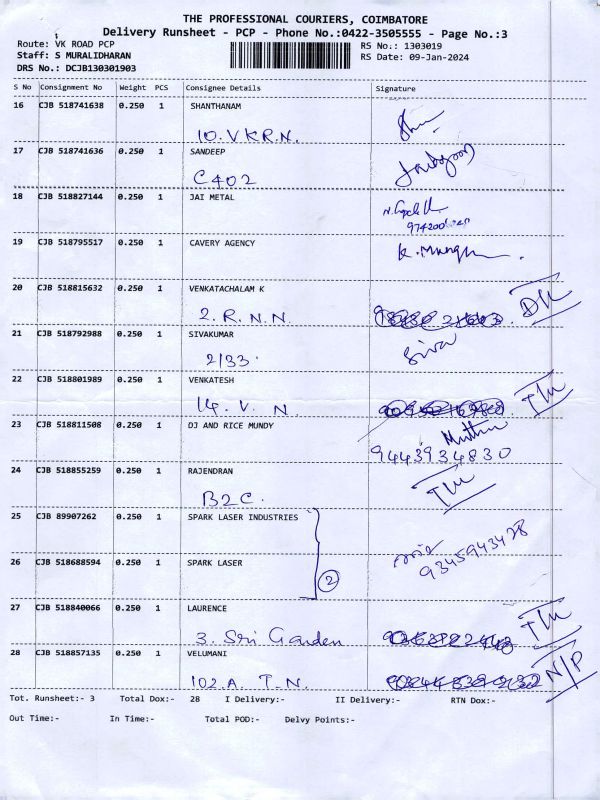 THE PROFESSIONAL COURIERS, COIMBATORE
Delivery Runsheet - PCP - Phone No.:0422-3505555 - Page No.:3
Route: VK ROAD PCP RS No.: 1303019
Staff: S MURALIDHARAN RS Date: 09-Jan-2024
DRS No.: DCJB130301903
S No Consignment No Weight PCS Consignee Details Signature
16 CJB 518741638 0.250 1 SHANTHANAM
10. V K R. N.
17 CJB 518741636 0.250 1 SANDEEP
C 402
18 CJB 518827144 0.250 1 JAI METAL
19 CJB 518795517 0.250 1 CAVERY AGENCY
20 CJB 518815632 0.250 1 VENKATACHALAM K
2. R. N. N.
21 CJB 518792988 0.250 1 SIVAKUMAR Siva
2/33.
22 CJB 518801989 0.250 1 VENKATESH
14. V. N.
23 CJB 518811508 0.250 1 DJ AND RICE MUNDY
9443934830
24 CJB 518855259 0.250 1 RAJENDRAN
B2C.
25 CJB 89907262 0.250 1 SPARK LASER INDUSTRIES
9345943428
26 CJB 518688594 0.250 1 SPARK LASER
2
27 CJB 518840066 0.250 1 LAURENCE
3. Sri Garden
28 CJB 518857135 0.250 1 VELUMANI N/P
102. A. T. N.
Tot. Runsheet:- 3 Total Dox:- 28 I Delivery:- II Delivery:- RTN Dox:-
Out Time:- In Time:- Total POD:- Delvy Points:-